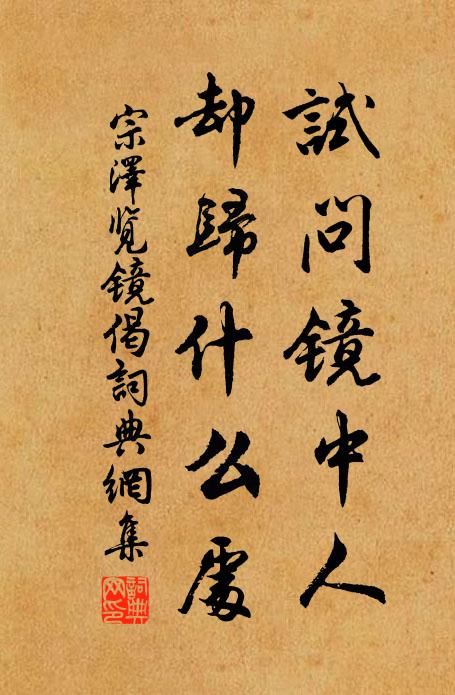 試問鏡中人
却歸什么處
宗澤覧鏡偈詞典網集
詞典網印